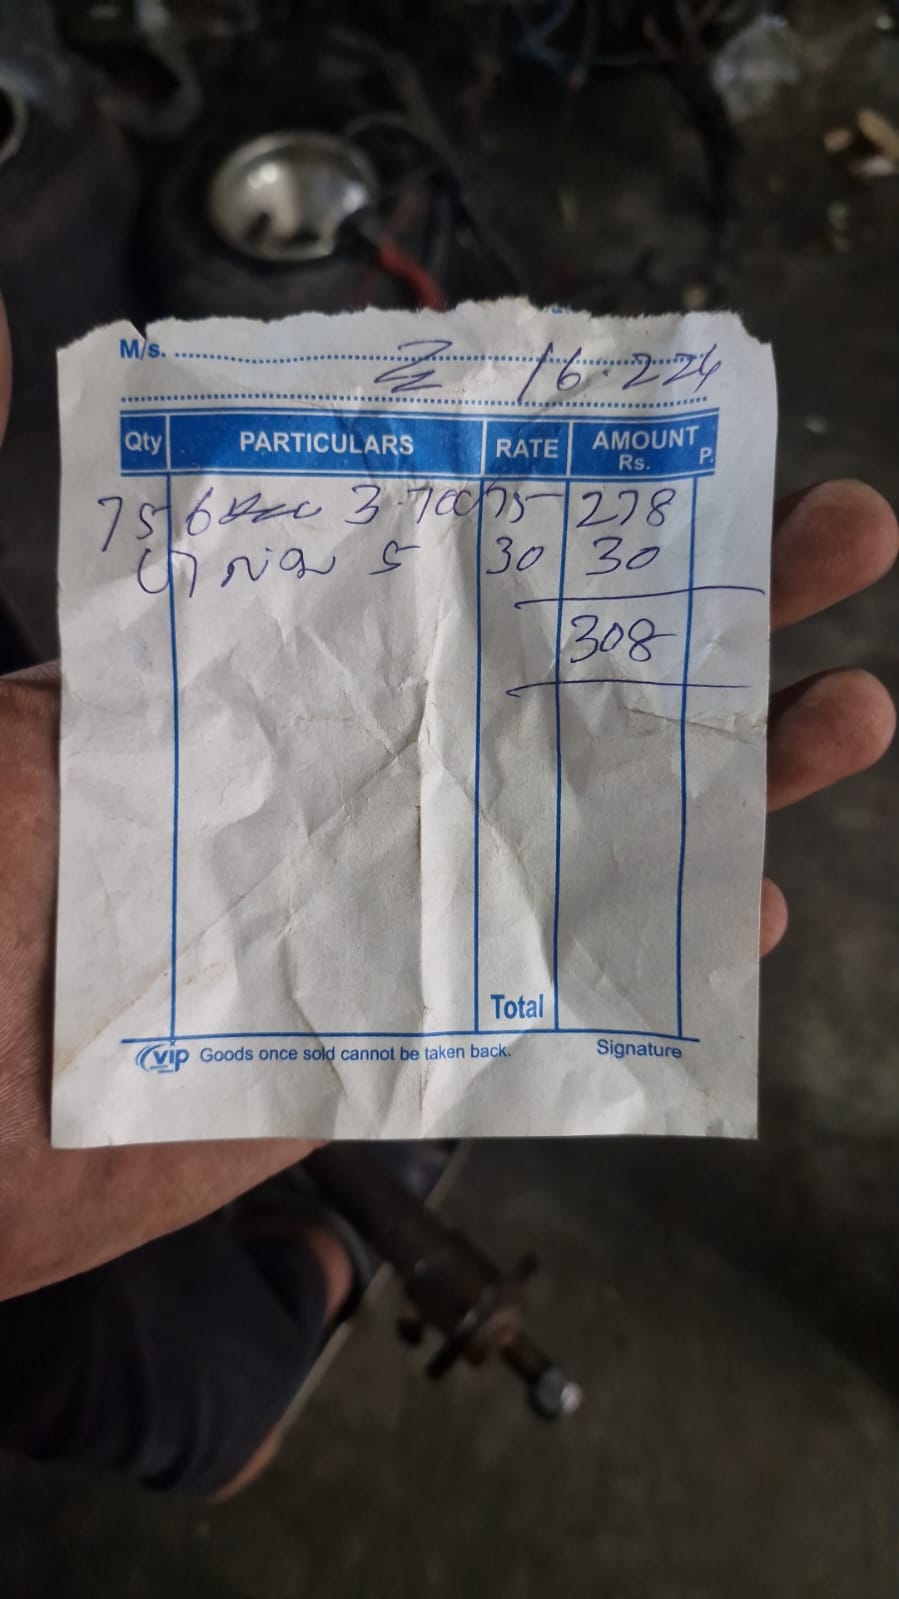 M/s. 16.224
Qty PARTICULARS RATE AMOUNT Rs. P.
75 6 3.700 75 278
5 30 30
308
Total
vip Goods once sold cannot be taken back. Signature